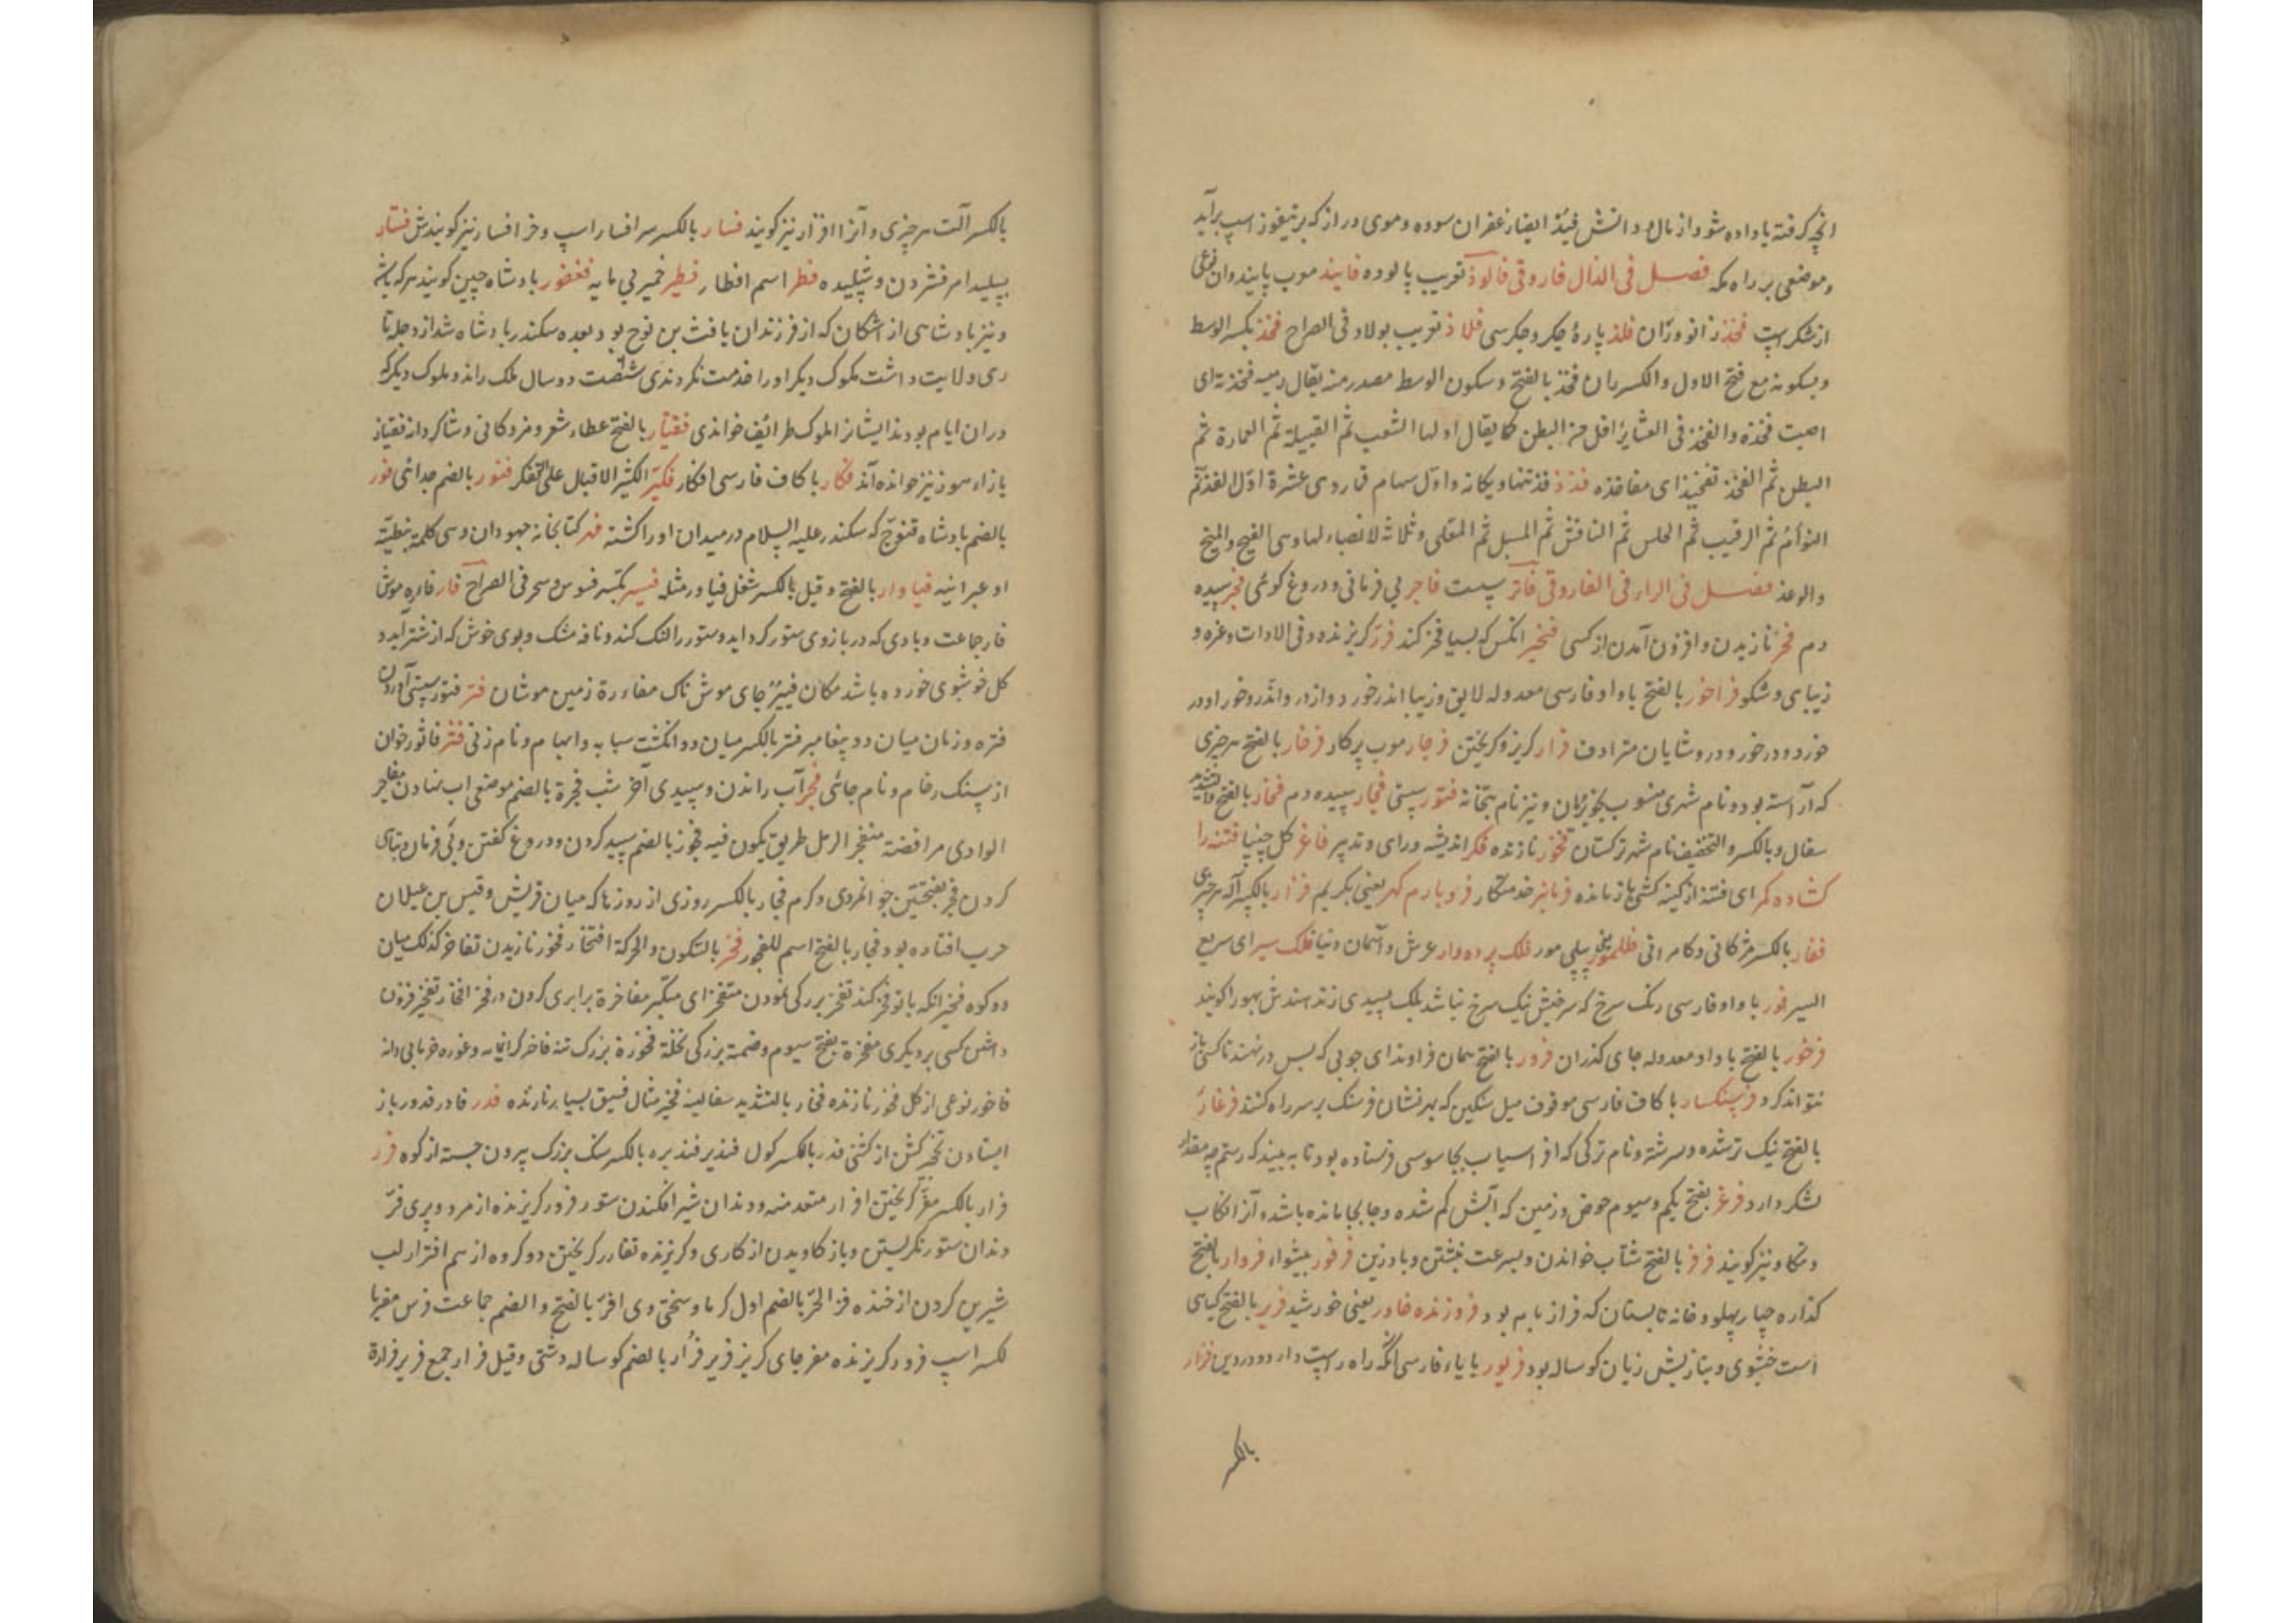 انچه کرفته یا داده شود از مال و دانش فیدُ ایضا زعفران سوده و موی دراز که بر تیفوز اسپ برآید
و موضعی بر راه مکه فصل فی الذال فاروقی فالوذ تعریب پالوده فانیذ موب پانیذ و ان نوعی
از شکر است فخذ زانو و ران فلذ پارهٔ جکر و جکر سی فلاذ تعریب پولاد و فی الصراح فخذ بکسر الوسط
و بسکونه مع فتح الاول و الکسر ران فخذ بالفتح و سکون الوسط مصدر منه یقال رمیه فخذته ای
اصبت فخذه و الفخذ فی العشایر اقل من البطن کما یقال اولها الشعب ثم القبیلة ثم العمارة ثم
البطن ثم الفخذ تفخیذ ای مفاخذه فذذ فذ تنها و یکانه و اول سهام قمار و هی عشرة اول الفذ ثم
التوأم ثم الرقیب ثم الحلس ثم النافش ثم المسبل ثم المعلی و ثلاثة لا نصباء لها و هی الفسیح و المنیح
و الوغد فصل فی الراء فی الفاروقی فاتر سست فاجر بی فرمانی و دروغ کوئی فجر سپیده
دم فخر نازیدن و افزون آمدن از کسی فخیر انکس که بسیا فخر کند فرّ کریزنده و فی الادات و غره و
زیبای و شکو فراخور بالفتح با واو فارسی معدوله لایق و زیبا اندر خورد و از در و اندر و خور او در
خورد و درخور و در و شایان مترادف فرار کریز و کریختن فرجار موب پرکار فرخار بالفتح هر چیزی
که آراسته بود و نام شهری منسوب بخوبرویان و نیز نام بتخانه فتور سستی فجار سپیده دم فخار بالفتح و التشدید
سفال و بالکسر و التخفیف نام شهر ترکستان فخور نازنده فکر اندیشه و رای و تدبیر فاغر کل چنپا فتنه را
کشاده کمر ای فتنه از کینه کشی باز مانده فرمانبر خدمتکار فرو بارم کهر یعنی بکریم فزار بالکسر آلت هر چیزی
فقار بالکسر مژکانی و کامرانی فلفل مور پیپلی مور فلک پرده دار عرش و آسمان دنیا فلک سیر ای سریع
السیر فور با واو فارسی رنک سرخ که سرخیش نیک سرخ نباشد بلک بسپیدی زند هندش بهورا کویند
فرخور بالفتح با واو معدوله جای کذران فرور بالفتح همان فراوند ای چوبی که پس در نهند تا کسی باز
نتواند کرد فرسنکسار با کاف فارسی موقوف میل سنکین که بهر نشان فرسنک بر سر راه کنند فرغار
بالفتح نیک تر شده و سرشته و نام ترکی که افراسیاب بجاسوسی فرستاده بود تا به بیند که رستم چه مقدار
لشکر دارد فرغر بفتح یکم و سیوم حوض و زمین که آبش کم شده و جابجا مانده باشد و آنرا کاب
و تکاو نیز کویند فرفر بالفتح شتاب خواندن و بسرعت نبشتن و بادزین فرفور پیشوا، فروار بالفتح
کذاره چهار پهلو و خانه تابستان که فراز بام بود فروزنده خاور یعنی خورشید فریر بالفتح کیاهی
است خشبوی و بتازیش زبان کوساله بود فریور با یاء فارسی انکه راه راست دارد و در دین فزار
بالکسر
بالکسر آلت هر چیزی و آنرا افزار نیز کویند فسار بالکسر سر افسار اسپ و خر افسار نیز کویندش فشار
بپلید امر فشردن و شپلیده فطر اسم افطار فطیر خمیر بی مایه فغفور بادشاه چین کویند هر که باشد
و نیز بادشاهی از اشکان که از فرزندان یافث بن نوح بود و بعده سکندر بادشاه شد از دجله تا
ری ولایت داشت ملوک دیکر او را خدمت نکردندی شصت و دو سال ملک راند و ملوک دیکر که
در ان ایام بودند ایشانرا ملوک طرائف خواندی فغیار بالفتح عطاء شعر و مژدکانی و شاکردانه فغیاز
بازاء هموز نیز خوانده آند فکار با کاف فارسی افکار فکیّر الکثیر الاقبال علی التفکر فنور بالضم جدائی فور
بالضم بادشاه قنوج که سکندر علیه السلام در میدان او را کشته فهر کتابخانه جهودان و هی کلمة نبطیّة
او عبرانیه فیاوار بالفتح و قیل بالکسر شغل فیاور مثله فیسر بکسر فسوس و سحر فی الصراح فار فاره موش
فار جماعت و بادی که در بازوی ستور کرد اید و ستور را لنک کند و نافه مشک و بوی خوش که از شتر آید و
کل خوشبوی خورده باشد مکان فیئر جای موش ناک مفاءرة زمین موشان فتر فتور سستی آوردن
فتره و زمان میان دو پیغامبر فتر بالکسر میان دو انکشت سبابه و ابهام و نام زنی فثر فاثور خوان
از سنک رخام و نام جائی فجر آب راندن و سپیدی آخر شب فجرة بالضم موضعی اب نهادن مفاجر
الوادی مرافضه منفجر الرمل طریق یکون فیه فجور بالضم سپید کردن و دروغ کفتن و بی فرمان و تباهی
کردن فجر بفتحتین جوانمردی و کرم فجار بالکسر روزی از روزها که میان قریش و قیس بن عیلان
حرب افتاده بود فجار بالفتح اسم للفجور فخر بالسکون و الحرکة افتخار فخور نازیدن تفاخر کذلک میان
دو کوه فخیر انکه با تو فخر کند تفخر بزرکی نمودن متفخر ای متکبر مفاخرة برابری کردن در فخر افخار تفخیر فزون
داشتن کسی بر دیکری مفخرة بفتح سیوم و ضمه بزرکی نخلة فخورة بزرک تنه فاخر کرانمایه و غوره خرمابی دانه
فاخور نوعی از کل فخور نازنده فخار بالتشدید سفالینه فخیر مثال فسیق بسیار نازنده فدر فادر فدور باز
ایستادن فحل کشن از کشنی فدر بالکسر کول فندیر فندیره بالکسر سنک بزرک بیرون جسته از کوه فرر
فرار بالکسر مفرّ کریختن افرار متعد منه و دندان شیر افکندن ستور فرور کریزنده از مرد و پری فرّ
دندان ستور نکریستن و باز کاویدن از کاری و کریزنده تفارر کریختن دو کروه از هم افترار لب
شیرین کردن از خنده فرّ الحرّ بالضم اول کرما و سختی وی افرّ بالفتح و الضم جماعت فرس مفر با
لکسر اسپ فرور کریزنده مفر جای کریز فریر فرُار بالضم کوساله دشتی و قیل فرار جمع فریر فرارة